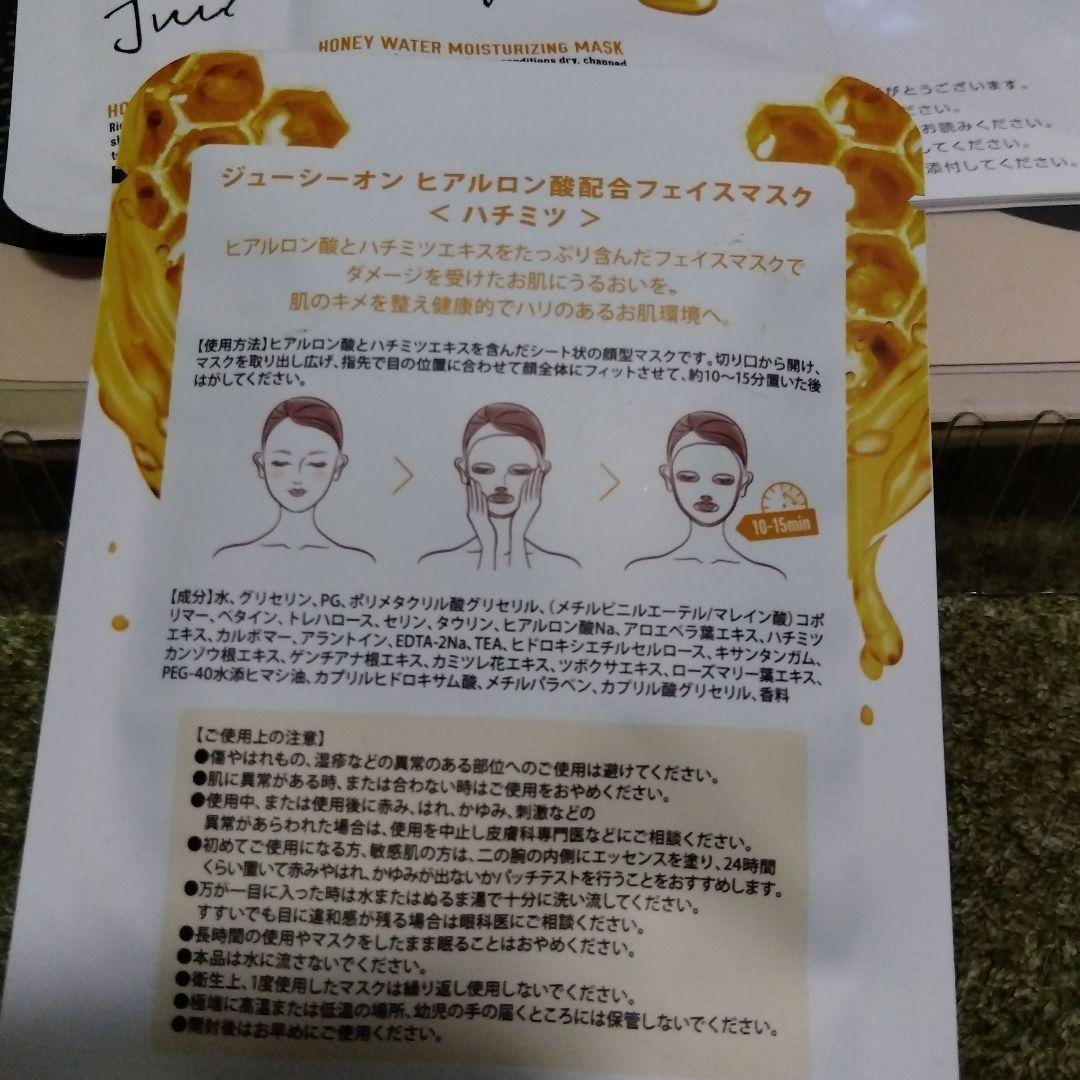 HONEY WATER MOISTURIZING MASK
conditions dry, chapped
HO
がとうございます。
ださい。
お読みください。
してください。
添付してください。
ジューシーオン ヒアルロン酸配合フェイスマスク
< ハチミツ >
ヒアルロン酸とハチミツエキスをたっぷり含んだフェイスマスクで
ダメージを受けたお肌にうるおいを。
肌のキメを整え健康的でハリのあるお肌環境へ。
【使用方法】ヒアルロン酸とハチミツエキスを含んだシート状の顔型マスクです。切り口から開け、
マスクを取り出し広げ、指先で目の位置に合わせて顔全体にフィットさせて、約10〜15分置いた後
はがしてください。
10-15min
【成分】水、グリセリン、PG、ポリメタクリル酸グリセリル、(メチルビニルエーテル/マレイン酸)コポ
リマー、ベタイン、トレハロース、セリン、タウリン、ヒアルロン酸Na、アロエベラ葉エキス、ハチミツ
エキス、カルボマー、アラントイン、EDTA-2Na、TEA、ヒドロキシエチルセルロース、キサンタンガム、
カンゾウ根エキス、ゲンチアナ根エキス、カミツレ花エキス、ツボクサエキス、ローズマリー葉エキス、
PEG-40水添ヒマシ油、カプリルヒドロキサム酸、メチルパラベン、カプリル酸グリセリル、香料
【ご使用上の注意】
●傷やはれもの、湿疹などの異常のある部位へのご使用は避けてください。
●肌に異常がある時、または合わない時はご使用をおやめください。
●使用中、または使用後に赤み、はれ、かゆみ、刺激などの
異常があらわれた場合は、使用を中止し皮膚科専門医などにご相談ください。
●初めてご使用になる方、敏感肌の方は、二の腕の内側にエッセンスを塗り、24時間
くらい置いて赤みやはれ、かゆみが出ないかパッチテストを行うことをおすすめします。
●万が一目に入った時は水またはぬるま湯で十分に洗い流してください。
すすいでも目に違和感が残る場合は眼科医にご相談ください。
●長時間の使用やマスクをしたまま眠ることはおやめください。
●本品は水に流さないでください。
●衛生上、1度使用したマスクは繰り返し使用しないでください。
●極端に高温または低温の場所、幼児の手の届くところには保管しないでください。
●開封後はお早めにご使用ください。